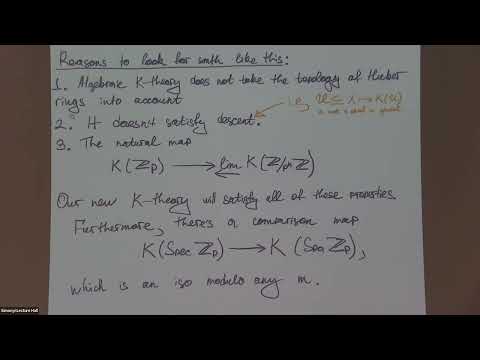 Reasons to look for smth like this:
1. Algebraic K-theory does not take the topology of Huber
rings into account
2. It doesn't satisfy descent. i.e., U ⊆ X ↦ K(U)
is not a sheaf in general
3. The natural map
K(ℤp) → lim K(ℤ/pⁿℤ)
Our new K-theory will satisfy all of these properties.
Furthermore, there's a comparison map
K(Spec ℤp) → K(Spa ℤp),
which is an iso modulo any m.
Simonyi Lecture Hall